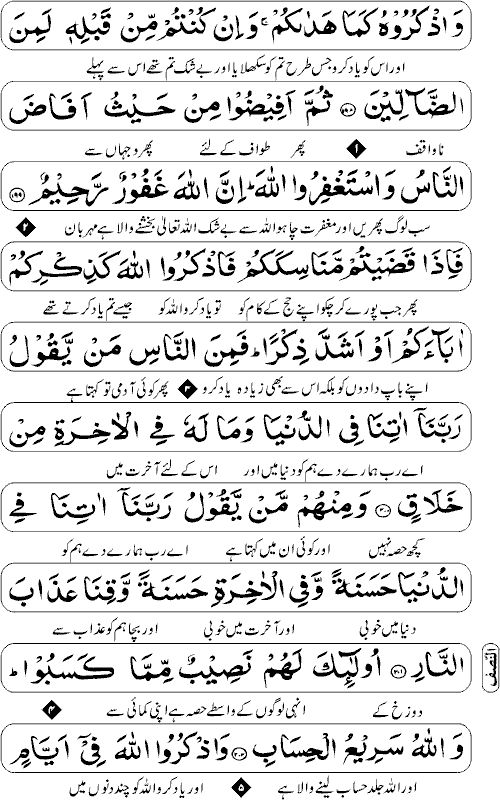 وَاذْكُرُوْهُ كَمَا هَدٰىكُمْ ۚ وَاِنْ كُنْتُمْ مِّنْ قَبْلِهٖ لَمِنَ
اور اس کو یاد کرو جس طرح تم کو سکھلایا اور بے شک تم تھے اس سے پہلے
الضَّآلِّيْنَ ﴿۱۹۸﴾ ثُمَّ اَفِيْضُوْا مِنْ حَيْثُ اَفَاضَ
ناواقف ۱ پھر طواف کے لئے پھرو جہاں سے
النَّاسُ وَاسْتَغْفِرُوا اللّٰهَ ؕ اِنَّ اللّٰهَ غَفُوْرٌ رَّحِيْمٌ ﴿۱۹۹﴾
سب لوگ پھریں اور مغفرت چاہو اللہ سے بے شک اللہ تعالیٰ بخشنے والا ہے مہربان ۲
فَاِذَا قَضَيْتُمْ مَّنَاسِكَكُمْ فَاذْكُرُوا اللّٰهَ كَذِكْرِكُمْ
پھر جب پورے کر چکو اپنے حج کے کام کو تو یاد کرو اللہ کو جیسے تم یاد کرتے تھے
اٰبَآءَكُمْ اَوْ اَشَدَّ ذِكْرًا ؕ فَمِنَ النَّاسِ مَنْ يَّقُوْلُ
اپنے باپ دادوں کو بلکہ اس سے بھی زیادہ یاد کرو ۳ پھر کوئی آدمی تو کہتا ہے
رَبَّنَآ اٰتِنَا فِى الدُّنْيَا وَمَا لَهٗ فِى الْاٰخِرَةِ مِنْ
اے رب ہمارے دے ہم کو دنیا میں اور اس کے لئے آخرت میں
خَلَاقٍ ﴿۲۰۰﴾ وَمِنْهُمْ مَّنْ يَّقُوْلُ رَبَّنَآ اٰتِنَا فِى
کچھ حصہ نہیں اور کوئی ان میں کہتا ہے اے رب ہمارے دے ہم کو
الدُّنْيَا حَسَنَةً وَّفِى الْاٰخِرَةِ حَسَنَةً وَّقِنَا عَذَابَ
دنیا میں خوبی اور آخرت میں خوبی اور بچا ہم کو عذاب سے
النَّارِ ﴿۲۰۱﴾ اُولٰٓئِكَ لَهُمْ نَصِيْبٌ مِّمَّا كَسَبُوْا ؕ
النصف
دوزخ کے انہی لوگوں کے واسطے حصہ ہے اپنی کمائی سے ۴
وَاللّٰهُ سَرِيْعُ الْحِسَابِ ﴿۲۰۲﴾ وَاذْكُرُوا اللّٰهَ فِىْٓ اَيَّامٍ
اور اللہ جلد حساب لینے والا ہے ۵ اور یاد کرو اللہ کو چند دنوں میں